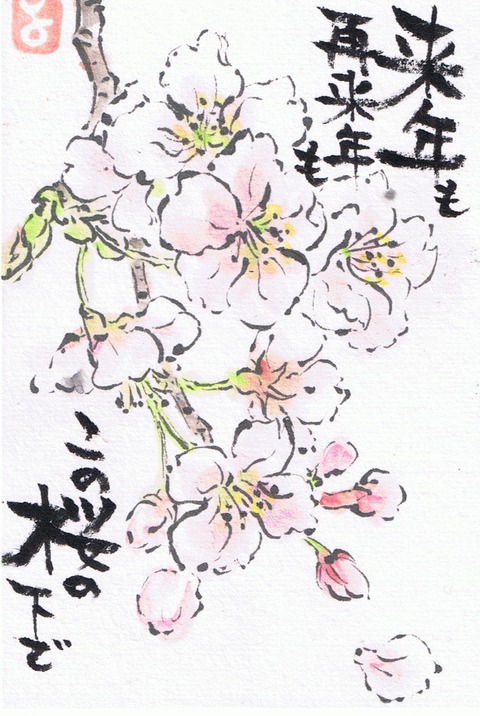 来年も
再来年も
この桜の
下で